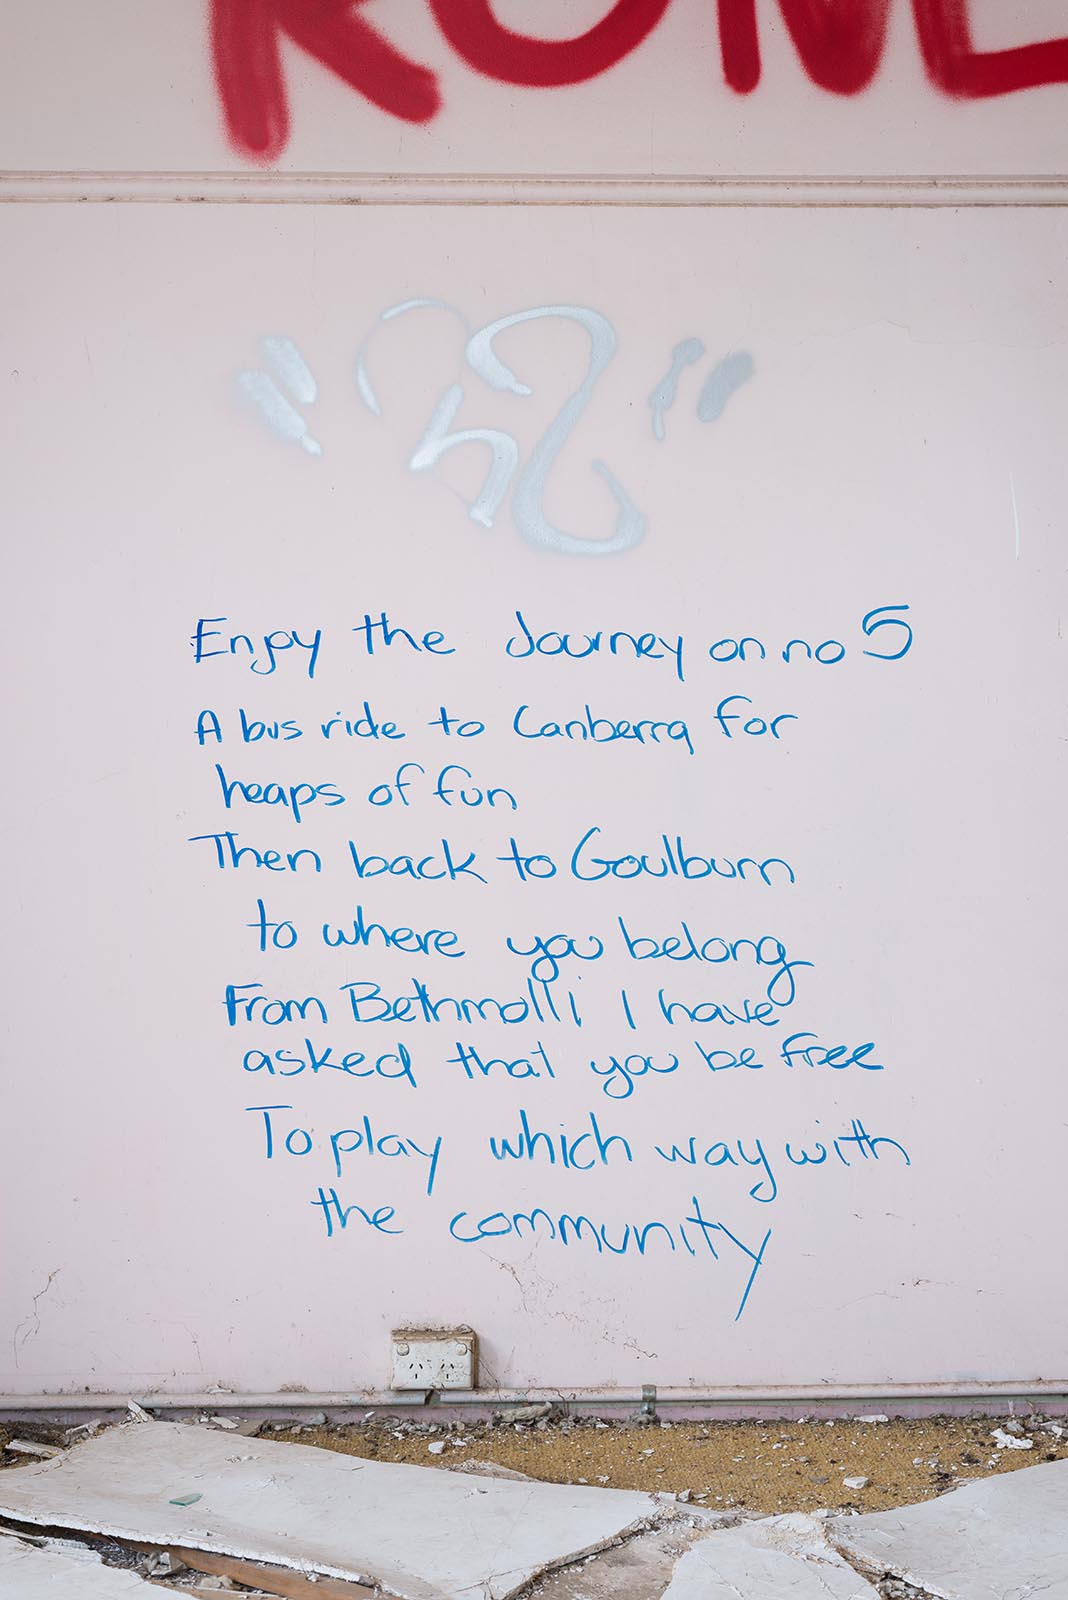 Enjoy the Journey on no 5
A bus ride to Canberra for
heaps of fun
Then back to Goulburn
to where you belong
From Bethmolli I have
asked that you be free
To play which way with
the community